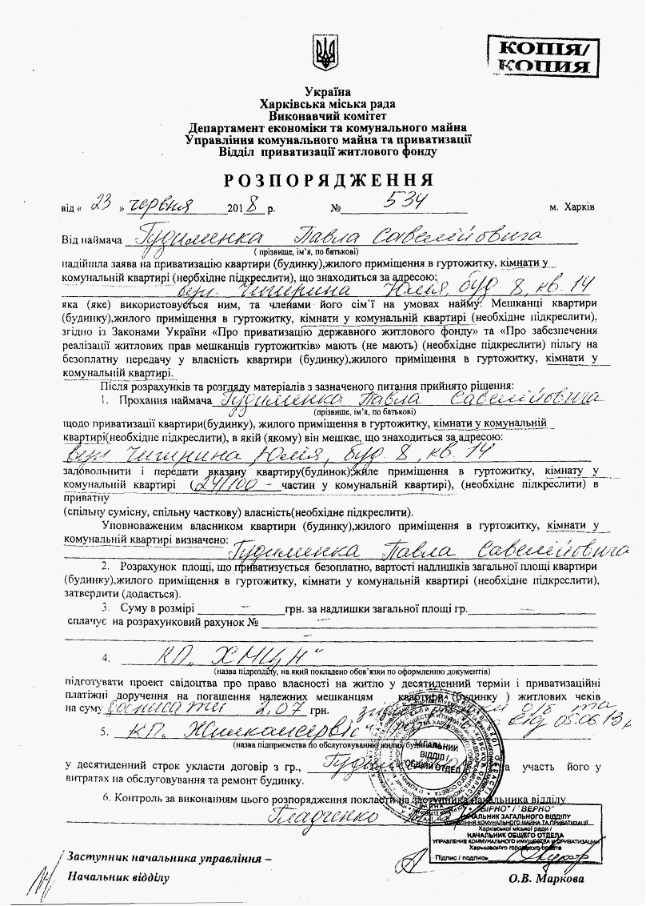 КОПІЯ/
КОПИЯ
Україна
Харківська міська рада
Виконавчий комітет
Департамент економіки та комунального майна
Управління комунального майна та приватизації
Відділ приватизації житлового фонду
РОЗПОРЯДЖЕННЯ
від « 23 » червня 2018 р. № 534 м. Харків
Від наймача Гудименка Павла Савелійовича
( прізвище, ім’я, по батькові)
надійшла заява на приватизацію квартири (будинку),жилого приміщення в гуртожитку, кімнати у
комунальній квартирі (необхідне підкреслити), що знаходиться за адресою:
вул. Чигирина Юлія, буд 8, кв. 14
яка (яке) використовується ним, та членами його сім’ї на умовах найму. Мешканці квартири
(будинку),жилого приміщення в гуртожитку, кімнати у комунальній квартирі (необхідне підкреслити),
згідно із Законами України «Про приватизацію державного житлового фонду» та «Про забезпечення
реалізації житлових прав мешканців гуртожитків» мають (не мають) (необхідне підкреслити) пільгу на
безоплатну передачу у власність квартири (будинку),жилого приміщення в гуртожитку, кімнати у
комунальній квартирі.
Після розрахунків та розгляду матеріалів з зазначеного питання прийнято рішення:
1. Прохання наймача Гудименка Павла Савелійовича
(прізвище, ім’я, по батькові)
щодо приватизації квартири(будинку), жилого приміщення в гуртожитку, кімнати у комунальній
квартирі(необхідне підкреслити), в якій (якому) він мешкає, що знаходиться за адресою:
вул Чигирина Юлія, буд 8, кв. 14
задовольнити і передати вказану квартиру(будинок);жиле приміщення в гуртожитку, кімнату у
комунальній квартирі (24/100 - частин у комунальній квартирі), (необхідне підкреслити) в
приватну
(спільну сумісну, спільну часткову) власність(необхідне підкреслити).
Уповноваженим власником квартири (будинку),жилого приміщення в гуртожитку, кімнати у
комунальній квартирі визначено:
Гудименка Павла Савелійовича
2. Розрахунок площі, що приватизується безоплатно, вартості надлишків загальної площі квартири
(будинку),жилого приміщення в гуртожитку, кімнати у комунальній квартирі (необхідне підкреслити),
затвердити (додається).
3. Суму в розмірі — грн. за надлишки загальної площі гр. —
сплачує на розрахунковий рахунок № —
4. КП „ХМЦН"
(назва підрозділу, на який покладено обов’язки по оформленню документів)
підготувати проект свідоцтва про право власності на житло у десятиденний термін і приватизаційні
платіжні доручення на погашення належних мешканцям квартири (будинку ) житлових чеків
на суму 2,07 грн. від 05.06.13р
5. КП. Жилкомсервіс
(назва підприємства по обслуговуванню житлового будинку)
у десятиденний строк укласти договір з гр., Гудименка на участь його у
витратах на обслуговування та ремонт будинку.
6. Контроль за виконанням цього розпорядження покласти на заступника начальника відділу
Гладченко
ЗАГАЛЬНИЙ
ВІДДІЛ /
ОБЩИЙ ОТДЕЛ
"ВІРНО" / "ВЕРНО"
НАЧАЛЬНИК ЗАГАЛЬНОГО ВІДДІЛУ
УПРАВЛІННЯ КОМУНАЛЬНОГО МАЙНА ТА ПРИВАТИЗАЦІЇ
Харківської міської ради /
НАЧАЛЬНИК ОБЩЕГО ОТДЕЛА
УПРАВЛЕНИЕ КОММУНАЛЬНОГО ИМУЩЕСТВА И ПРИВАТИЗАЦИИ
Харьковского городского совета
Підпис / подпись
Заступник начальника управління –
Начальник відділу О.В. Маркова